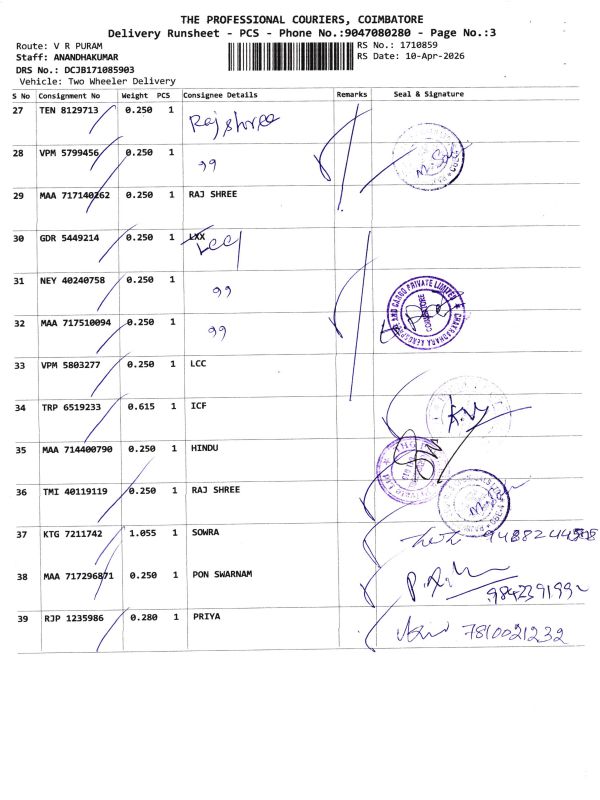 THE PROFESSIONAL COURIERS, COIMBATORE
Delivery Runsheet - PCS - Phone No.:9047080280 - Page No.:3
Route: V R PURAM RS No.: 1710859
Staff: ANANDHAKUMAR RS Date: 10-Apr-2026
DRS No.: DCJB171085903
Vehicle: Two Wheeler Delivery
S No Consignment No Weight PCS Consignee Details Remarks Seal & Signature
27 TEN 8129713 0.250 1 Raj shree
28 VPM 5799456 0.250 1 ,,
29 MAA 717140262 0.250 1 RAJ SHREE
30 GDR 5449214 0.250 1 LXX
LCC
31 NEY 40240758 0.250 1 ,,
32 MAA 717510094 0.250 1 ,,
CHAKRADHARA AEROSPACE AND CARGO PRIVATE LIMITED
COIMBATORE
33 VPM 5803277 0.250 1 LCC
34 TRP 6519233 0.615 1 ICF
35 MAA 714400790 0.250 1 HINDU
36 TMI 40119119 0.250 1 RAJ SHREE
37 KTG 7211742 1.055 1 SOWRA
38 MAA 717296871 0.250 1 PON SWARNAM
39 RJP 1235986 0.280 1 PRIYA 7810021232